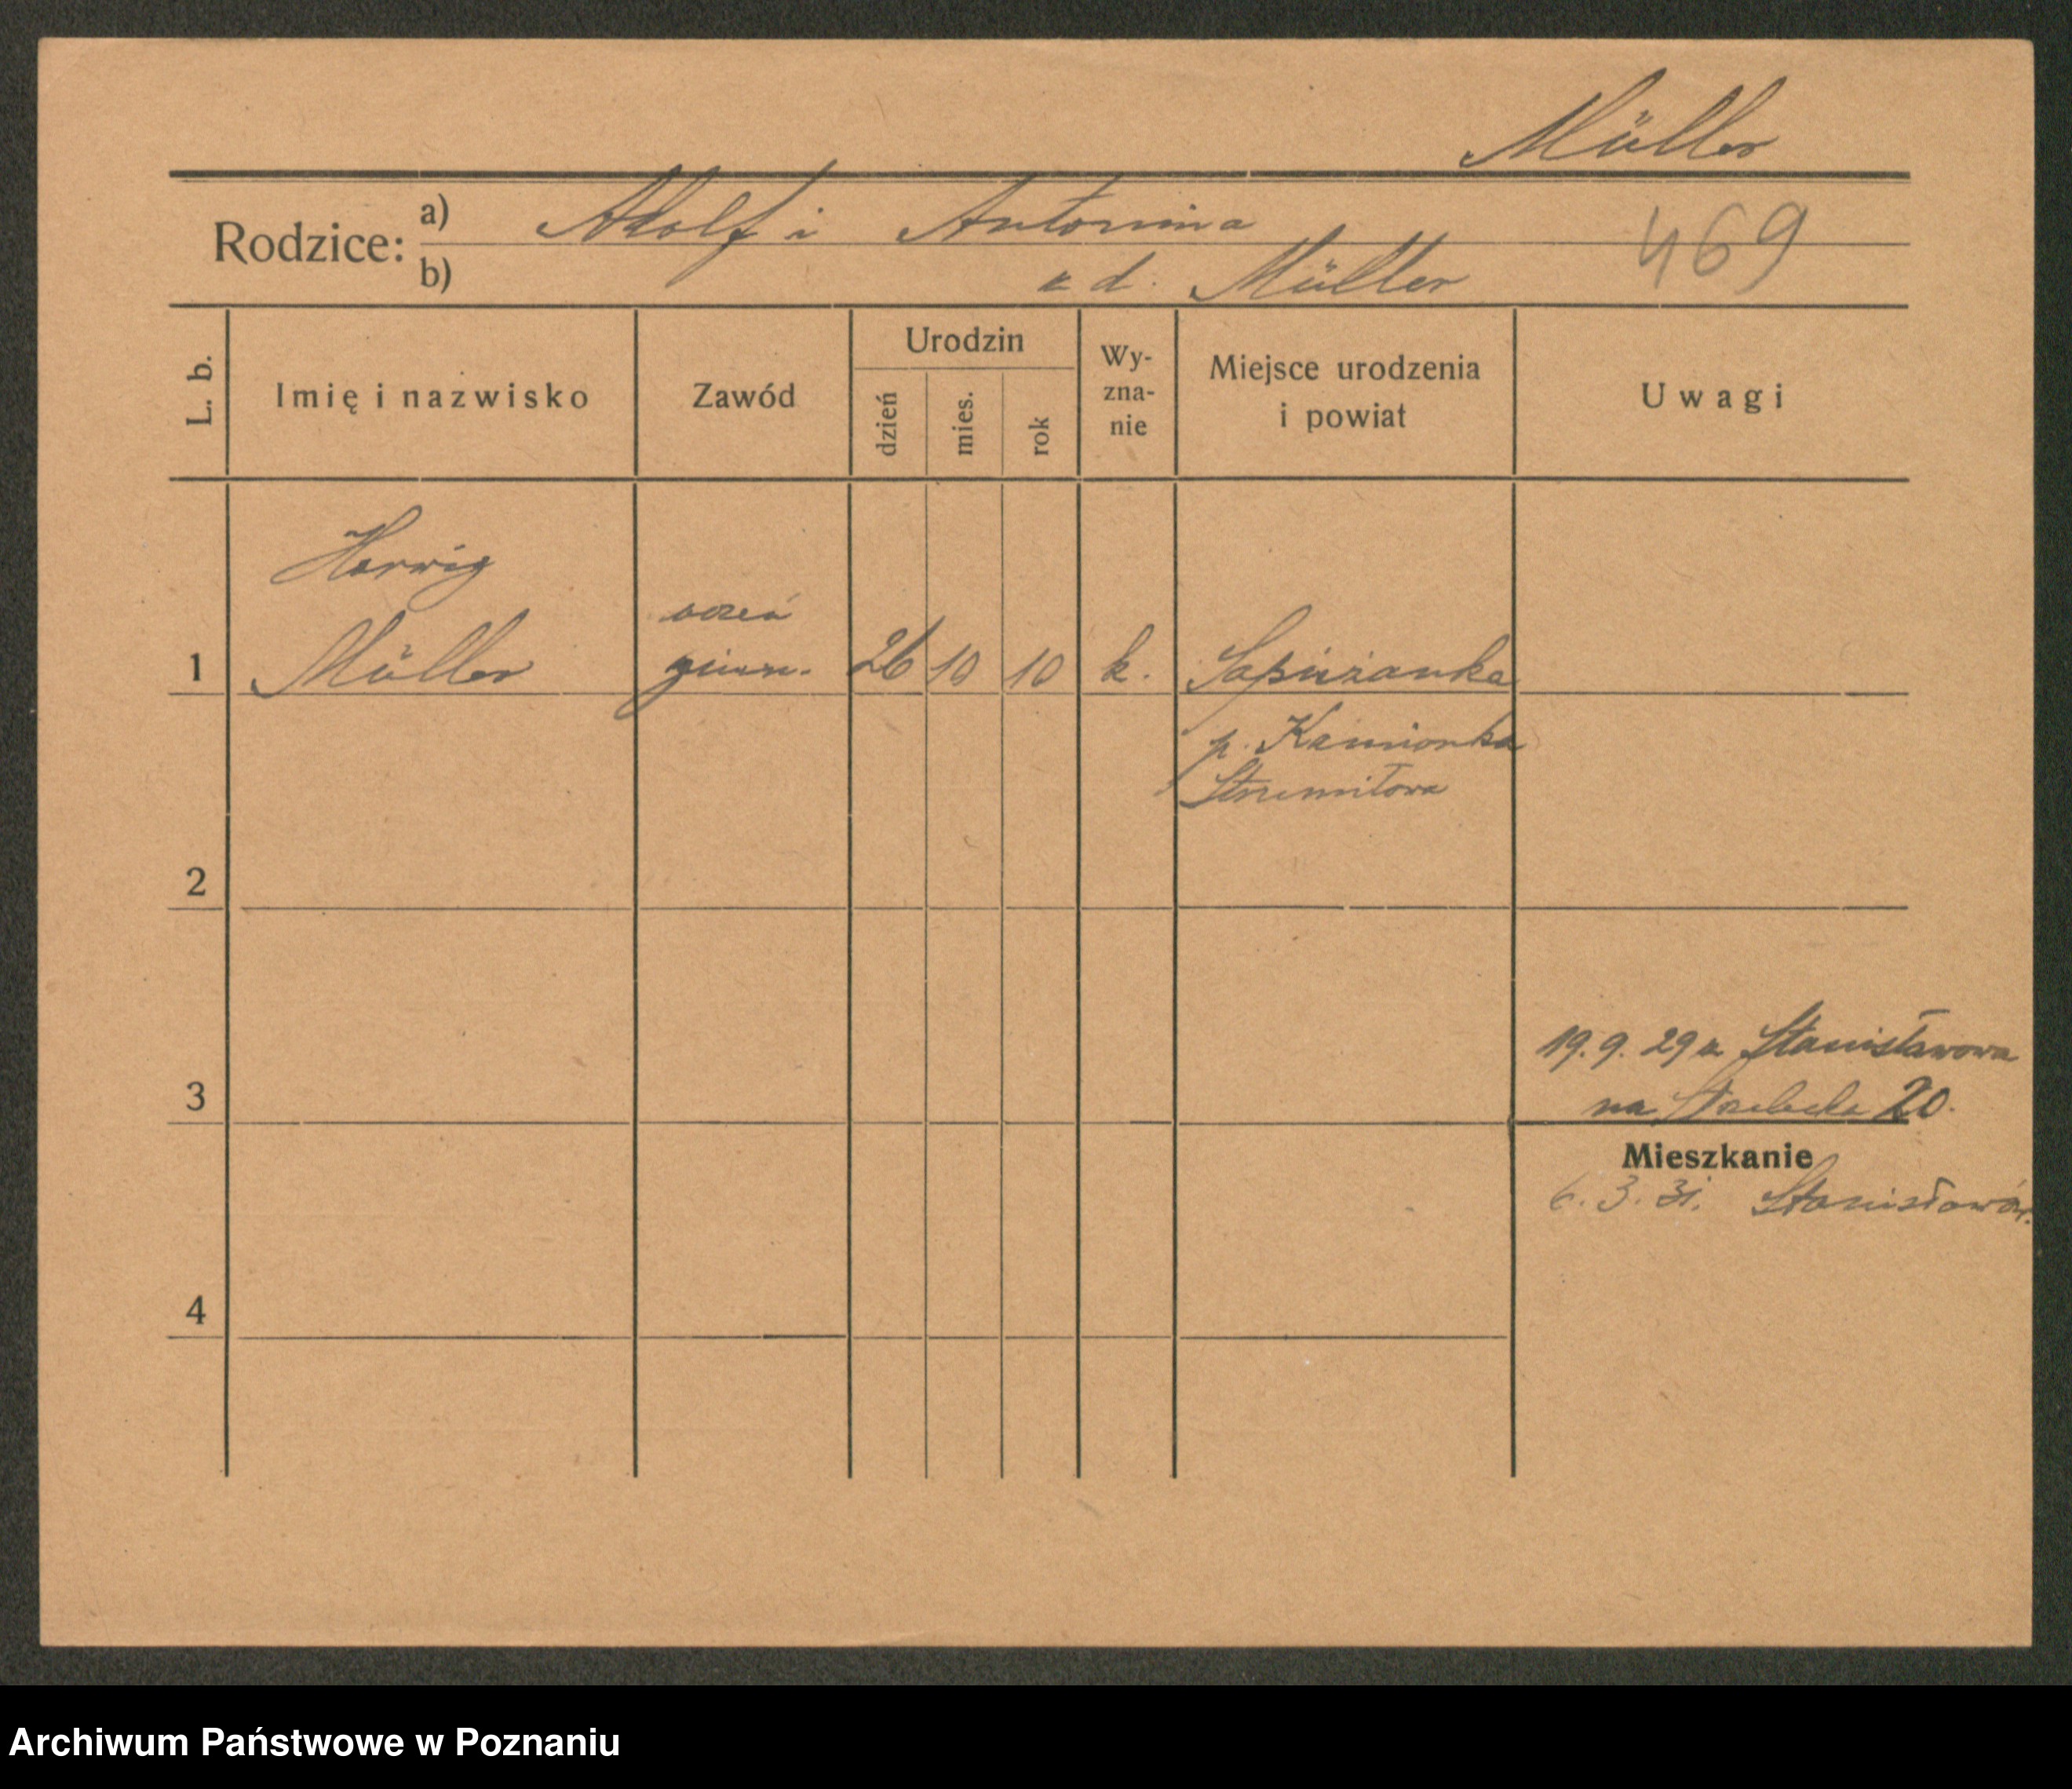 Müller
Rodzice: a) Adolf i Antonina
b) z d. Müller
469
L. b. Imię i nazwisko Zawód Urodzin dzień mies. rok Wy-zna-nie Miejsce urodzenia i powiat Uwagi
Herwig uczeń
1 Müller gimn. 26 10 10 k. Sapieżanka
p. Kamionka
Strumiłowa
2
19. 9. 29 z Stanisławowa
3 na 20.
Mieszkanie
6. 3. 31. Stanisławów.
4
Archiwum Państwowe w Poznaniu